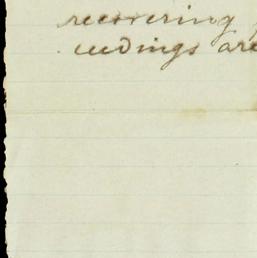 recovering
ceedings are